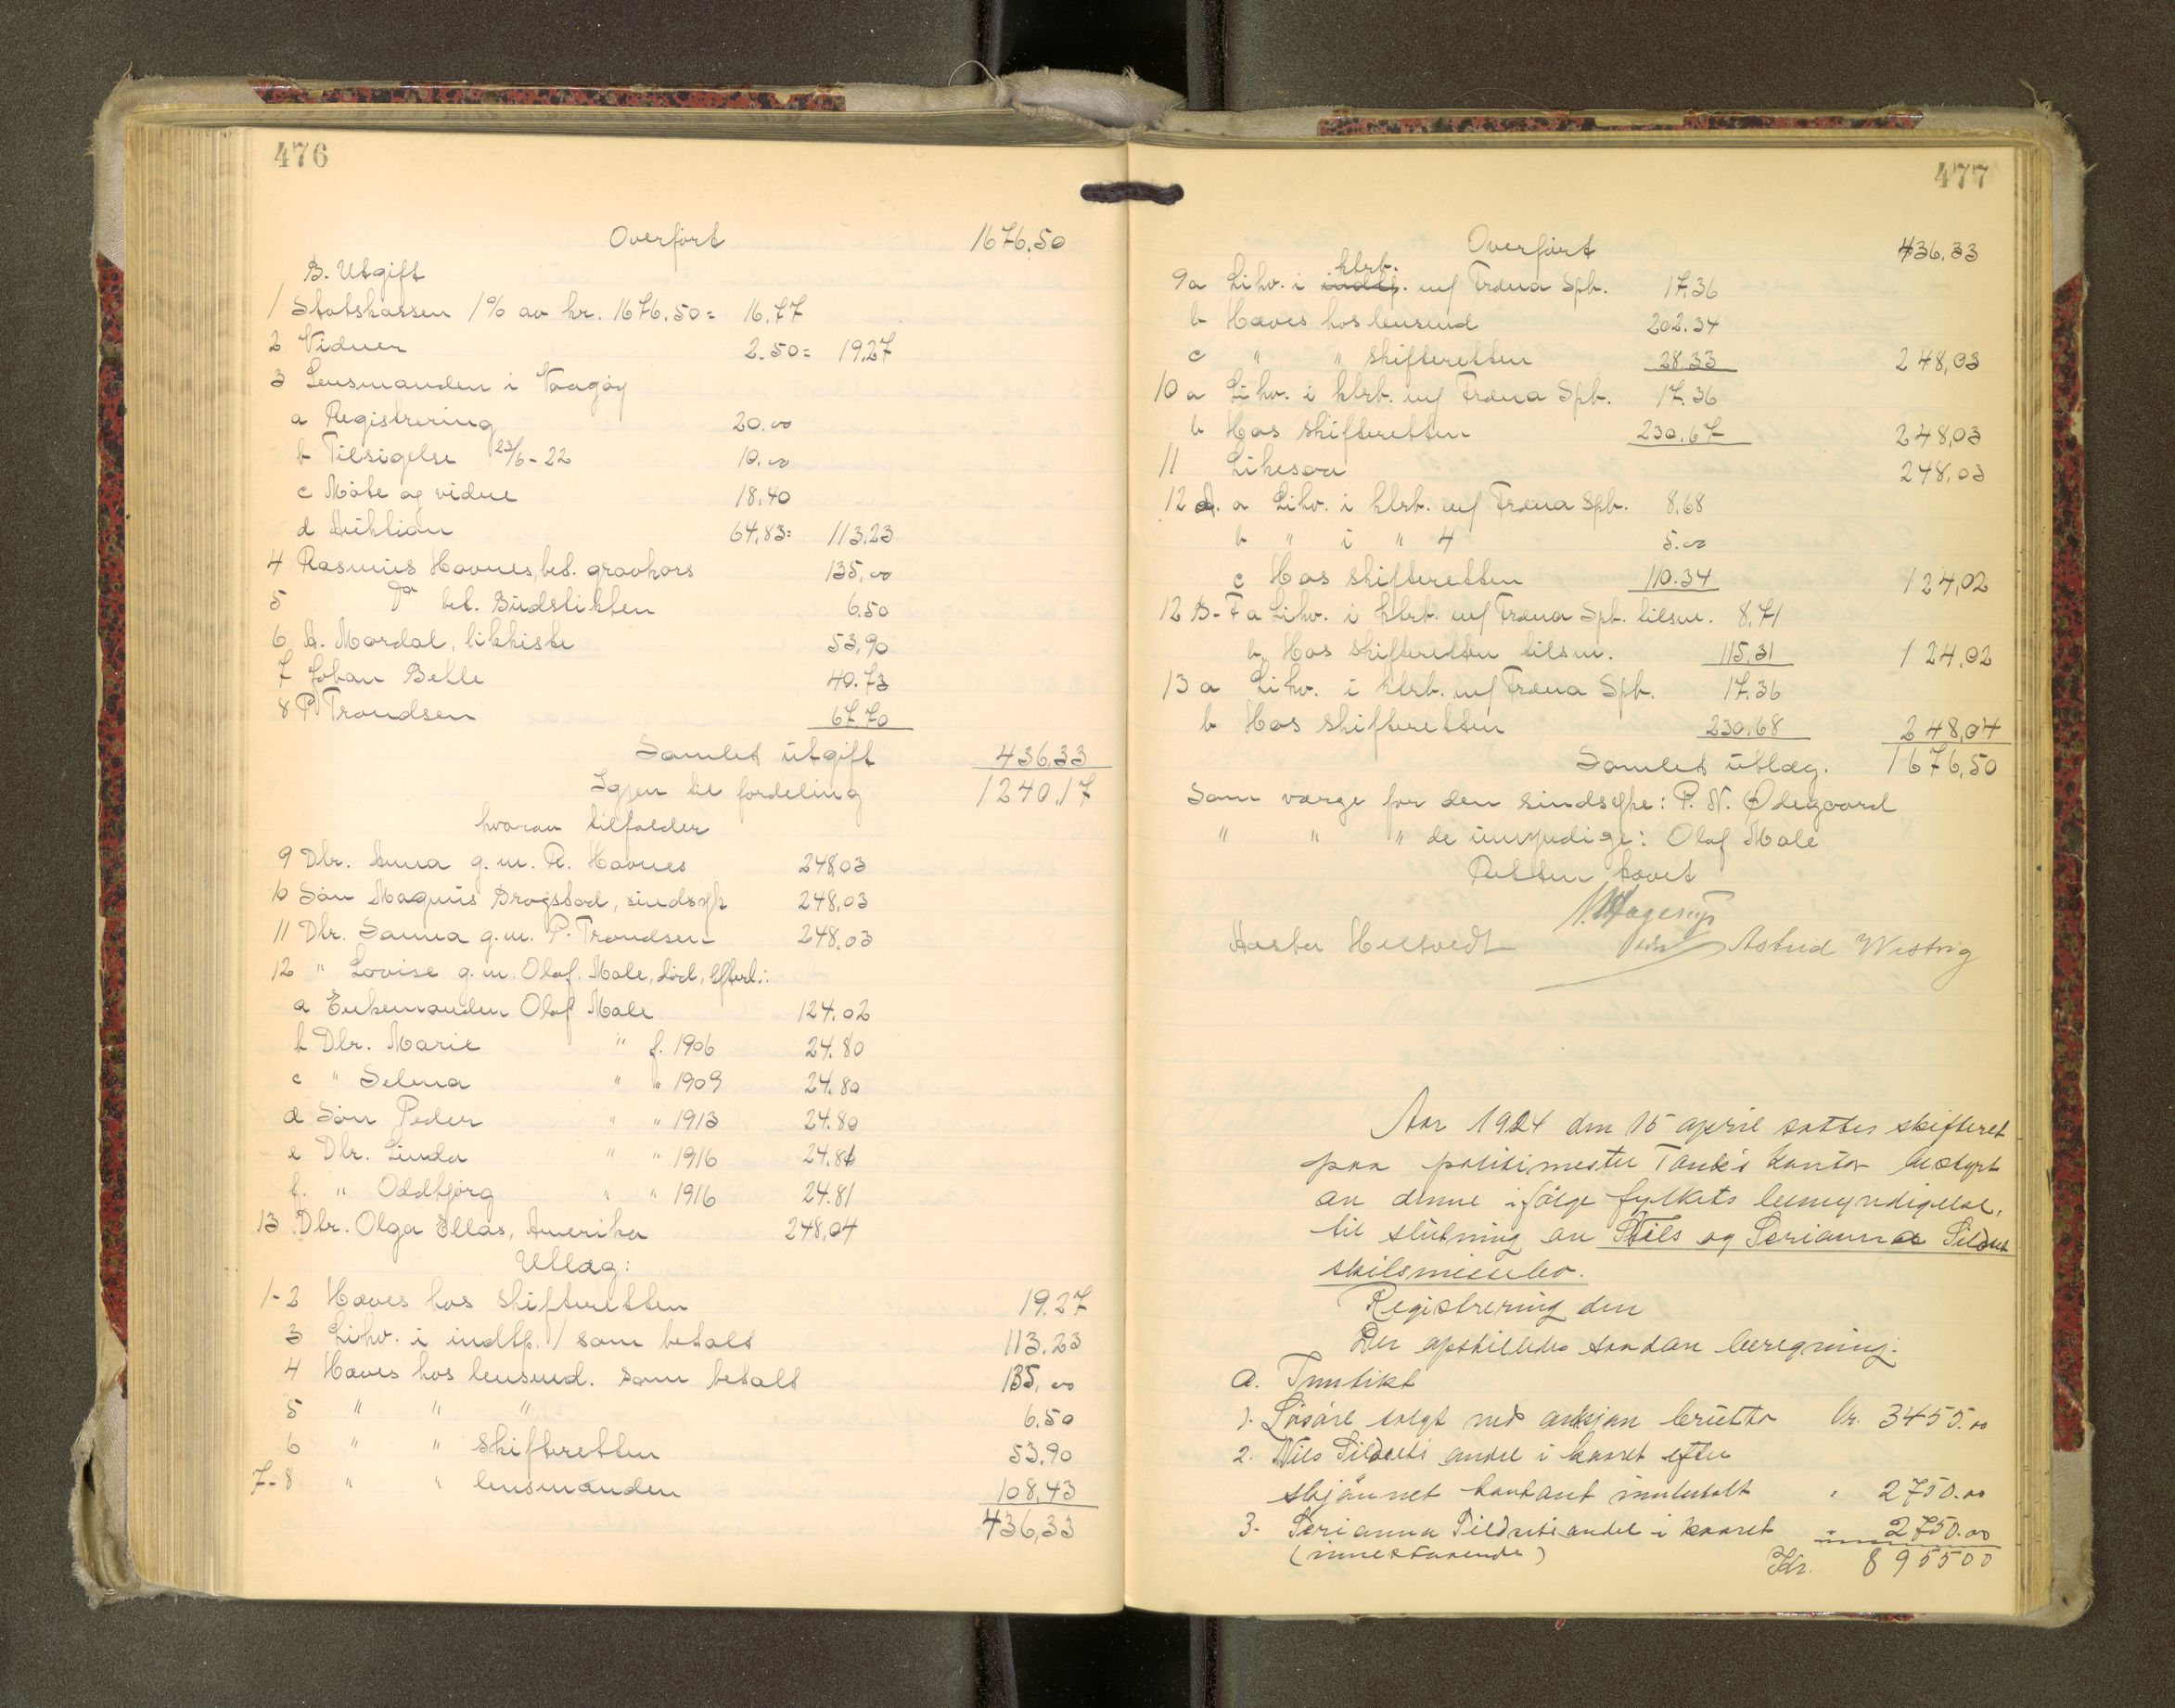 476
Overført 1676.50
B. Utgift
1 Statskassen 1% av kr. 1676.50 = 16.77
2 Vidner 2.50 = 19.27
3 Lensmanden i Vaagøy
a Registrering 20.00
b Tilsigelse 23/6-22 10.00
c Møte og vidne 18.40
d Auktion 64.83 = 113.23
4 Rasmus Havnes, bet. gravkors 135,00
5 Do bet. Budstikken 6.50
6 A. Mordal, likkiste 53,90
7 Johan Belle 40.73
8 P. Trondsen 67.70
Samlet utgift 436,33
Igjen til fordeling 1240,17
hvorav tilfalder
9 Dtr. Anna g.m. R. Havnes 248,03
10 Søn Magnus Drogstad, sindssyk 248,03
11 Dtr. Sanna g.m. P. Trondsen 248.03
12 " Lovise g.m. Olaf Male, død, Efterl.:
a Enkemanden Olaf Male 124.02
b Dtr. Marie " f. 1906 24.80
c " Selma " " 1909 24.80
d Søn Peder " " 1913 24.80
e Dtr. Linda " " 1916 24.81
f. " Oddbjørg " " 1916 24.81
13 Dtr. Olga Ellas, Amerika 248,04
Utlæg:
1-2 Haves hos skifteretten 19.27
3 Likv. i indtp. 1 som betalt 113.23
4 Haves hos lensmd. som betalt 135,00
5 " " " 6.50
6 " " skifteretten 53.90
7-8 " " lensmanden 108,43
436,33
477
Overført 436,33
9a Likv. i indtp. ktrb. m/ Fræna Spb. 17.36
b Haves hos lensmd 202.34
c " " skifteretten 28.33 248,03
10 a Likv. i ktrb. m/ Fræna Spb. 17.36
b Hos skifteretten 230.67 248,03
11 Likesaa 248,03
12 A. a Likv. i ktrb. m/ Fræna Spb. 8.68
b " i " 4 5.00
c Hos skifteretten 110.34 124,02
12 B-F a Likv. i ktrb. m/ Fræna Spb. tilsm. 8.71
b Hos skifteretten tilsm. 115,31 124,02
13 a Likv. i ktrb. m/ Fræna Spb. 17.36
b Hos skifteretten 230.68 248,04
Samlet utlæg. 1676,50
Som værge for den sindssyke: P. N. Ødegaard
" " " de umyndige: Olaf Male
Retten hævet
Hagerup
Astrid Westvig
Aar 1924 den 15 april sattes skifteret
paa politimester Tank's kontor bestyrt
av denne ifølge fylkets bemyndigelse,
til slutning av Nils og Serianna Sildset
skilsmissebo.
Registrering den
Der opstilledes saadan beregning:
A. Inntekt
1. Løsøre solgt ved auksjon brutto kr. 3455.00
2. Nils Sildsets andel i kaaret efter
skjønnet kontant innbetalt " 2750.00
3. Serianna Sildsets andel i kaaret " 2750.00
(innestaaende) Kr. 895500